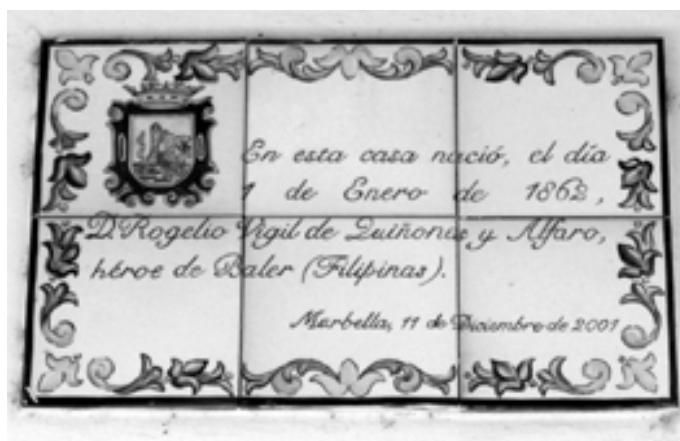 En esta casa nació, el día
1 de Enero de 1862,
D. Rogelio Vigil de Quiñones y Alfaro,
héroe de Baler (Filipinas).
Marbella, 11 de Diciembre de 2001